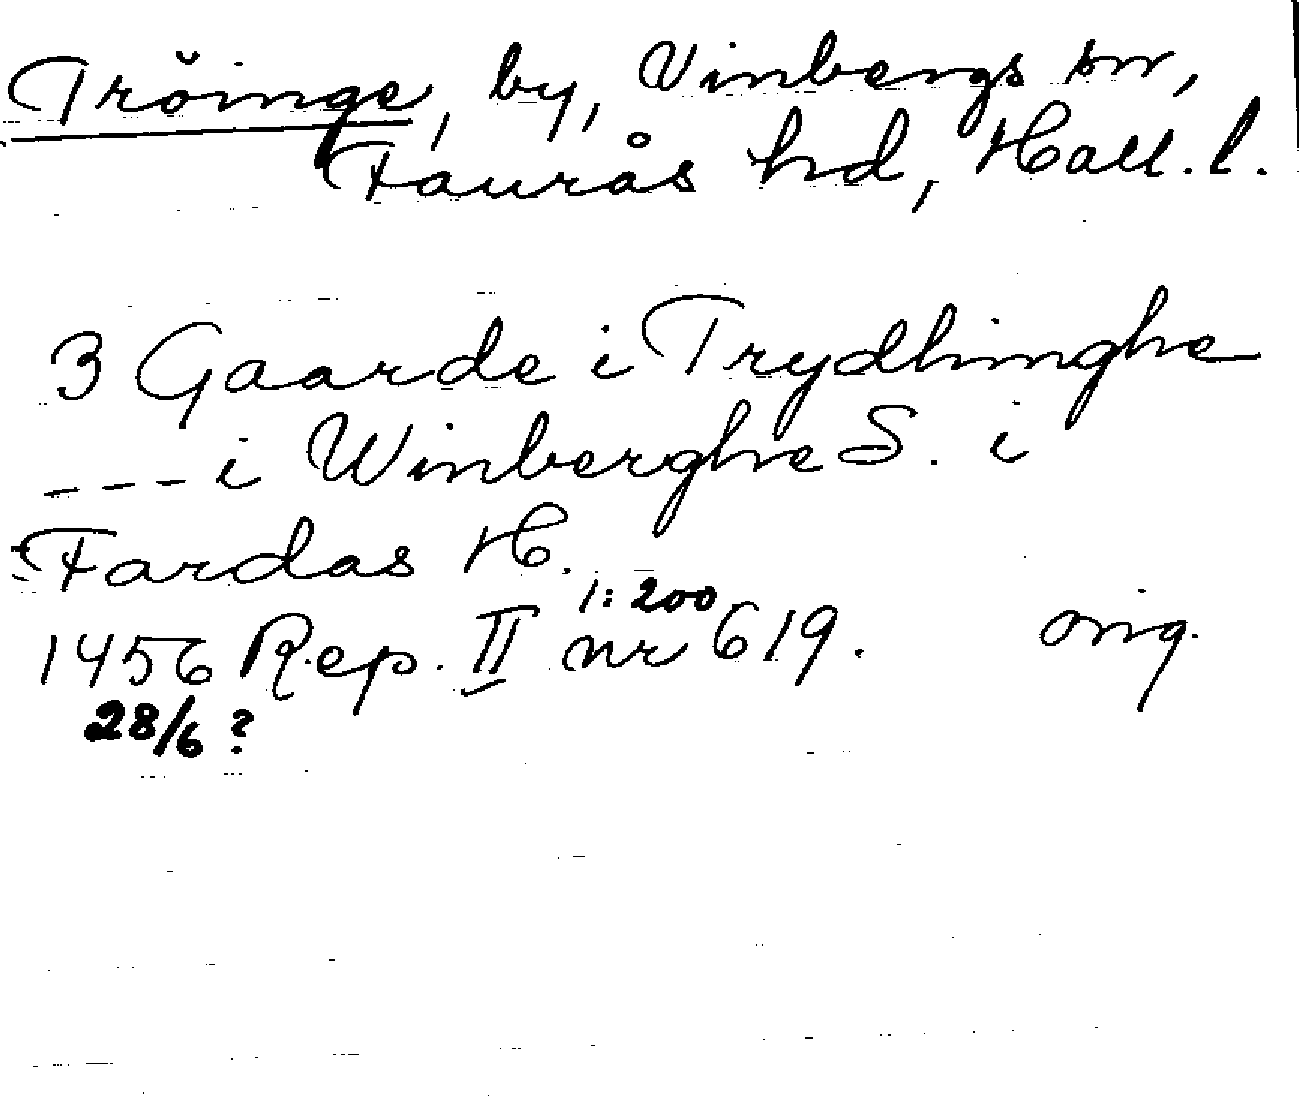 Tröinge, by, Vinbergs sn,
Faurås hd, Hall. l.
3 Gaarde i Trydhinghe
--- i Winberghe S. i
Fardas H.
1456 Rep. II 1:200 nr 619. orig.
28/6 ?